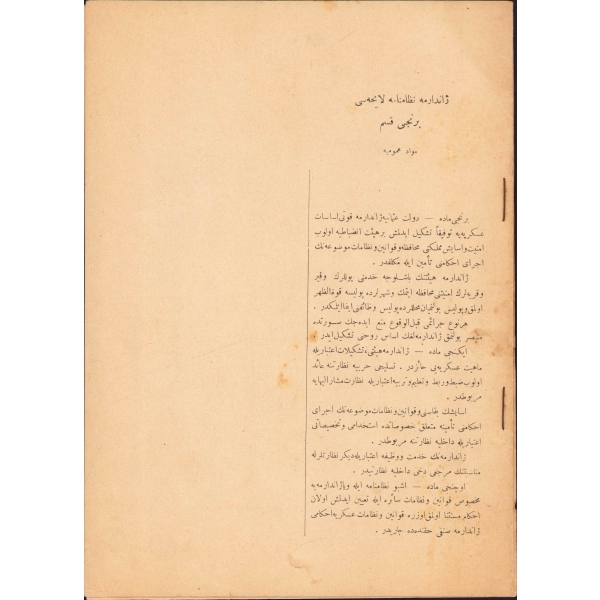 ژاندارمه نظامنامه لایحه‌سی
برنجی قسم
مواد عمومیه
برنجی ماده — دولت عثمانیه ژاندارمه قوتی اساسات
عسکریه‌یه توفیقاً تشکیل ایدلمش برهیئت انضباطیه اولوب
امنیت و آسایش مملکتی محافظه و قوانین و نظامات موضوعه‌نك
اجرای احکامنی تأمین ایله مکلفدر .
ژاندارمه هیئتنك باشلوجه خدمتی یوللرك و قیر
و قریه‌لرك امنیتنی محافظه ایتمك و شهرلرده پولیسه قوة الظهر
اولمق و پولیس بولنمیان محللرده پولیس وظائفنی ایفا ایتمکدر .
هرنوع جرائمی قبل الوقوع منع ایده‌جك صورتده
بولنمق ژاندارمه‌لغك اساس روحنی تشکیل ایدر .
ایکنجی ماده — ژاندارمه هیئتی، تشکیلات اعتباریله
ماهیت عسکریه‌یی حائزدر . تسلیحی حربیه نظارتنه عائد
اولوب ضبط و ربط و تعلیم و تربیه اعتباریله نظارت مشار الیهایه
مربوطدر .
آسایشك بقاسنی و قوانین و نظامات موضوعه‌نك اجرای
احکامنی تأمینه متعلق خصوصاتده استخدامی و تخصیصاتی
اعتباریله داخلیه نظارتنه مربوطدر .
ژاندارمه‌نك خدمت و وظیفه اعتباریله دیکر نظارتلرله
مناسبتنك مرجعی دخی داخلیه نظارتیدر .
اوچنجی ماده — اشبو نظامنامه ایله ویا ژاندارمه‌یه
مخصوص قوانین و نظامات سائره ایله تعیین ایدلمش اولان
احکام مستثنا اولمق اوزره قوانین و نظامات عسکریه احکامی
ژاندارمه صنفی حقنده‌ده جاریدر .